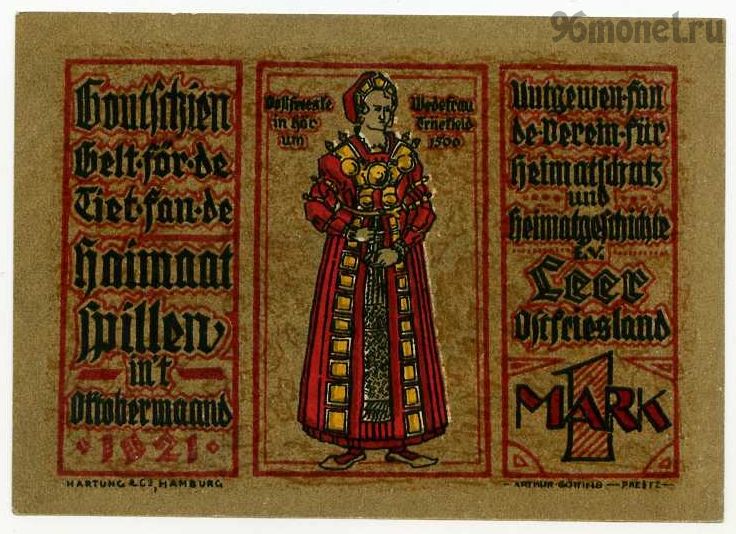 96monet.ru
Goutschien
Gelt·för·de
Tiet·fan·de
Haimaat
spillen
in't
Oktobermaand
1921
Oostfreeske Wedefrau
in hör
um 1500
Uutgewen·fan
de·Verein·für
Heimatschutz
und
Heimatgeschichte
E.V.
Leer
Ostfriesland
1
MARK
HARTUNG & Co, HAMBURG
ARTHUR GÖTING — PREETZ